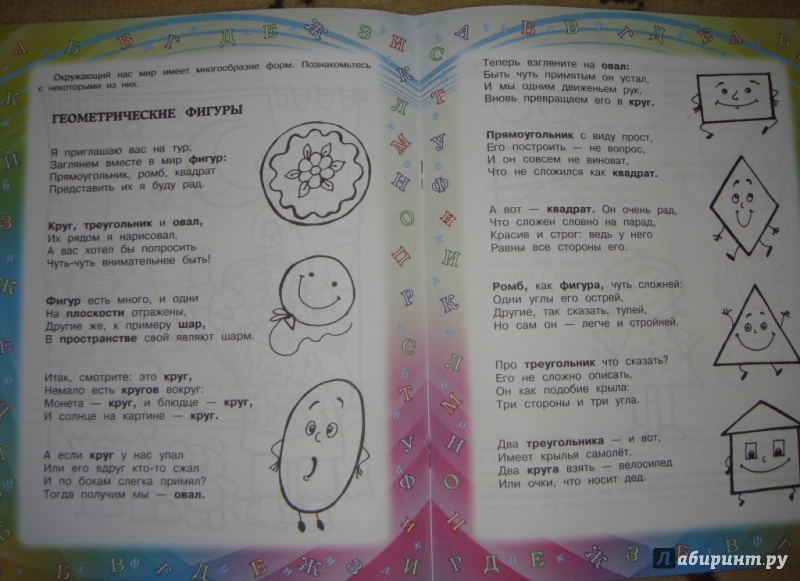 Окружающий нас мир имеет многообразие форм. Познакомьтесь
с некоторыми из них.
ГЕОМЕТРИЧЕСКИЕ ФИГУРЫ
Я приглашаю вас на тур,
Заглянем вместе в мир фигур:
Прямоугольник, ромб, квадрат
Представить их я буду рад.
Круг, треугольник и овал,
Их рядом я нарисовал,
А вас хотел бы попросить
Чуть-чуть внимательнее быть!
Фигур есть много, и одни
На плоскости отражены,
Другие же, к примеру шар,
В пространстве свой являют шарм.
Итак, смотрите: это круг,
Немало есть кругов вокруг:
Монета — круг, и блюдце — круг,
И солнце на картине — круг.
А если круг у нас упал
Или его вдруг кто-то сжал
И по бокам слегка примял?
Тогда получим мы — овал.
Теперь взгляните на овал:
Быть чуть примятым он устал,
И мы одним движеньем рук,
Вновь превращаем его в круг.
Прямоугольник с виду прост,
Его построить — не вопрос,
И он совсем не виноват,
Что не сложился как квадрат.
А вот — квадрат. Он очень рад,
Что сложен словно на парад,
Красив и строг: ведь у него
Равны все стороны его.
Ромб, как фигура, чуть сложней:
Одни углы его острей,
Другие, так сказать, тупей,
Но сам он — легче и стройней.
Про треугольник что сказать?
Его не сложно описать,
Он как подобие крыла:
Три стороны и три угла.
Два треугольника — и вот,
Имеет крылья самолёт.
Два круга взять — велосипед
Или очки, что носит дед.
Лабиринт.ру